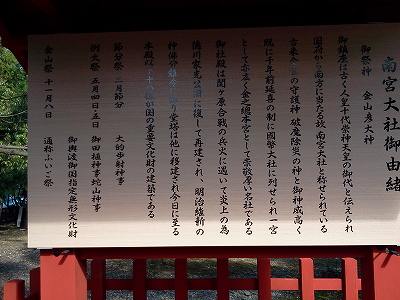 南宮大社御由緒
御祭神　金山彦大神
御鎮座は古く人皇十代崇神天皇の御代と伝えられ
国府から南方に当たる故、南宮大社と称せられている
古来の守護神　破魔除災の神と御神威高く
既に千年前延喜の制に國幣大社に列せられ一宮
として亦金の総本宮として崇敬厚い名社である
御社殿は関ヶ原合戦の兵火に遇いて炎上の為
徳川家光公に復して再建され、明治維新の
神佛分離堂塔は他に移建され今日に至る
本殿以下が国の重要文化財の建築である
節分祭　二月節分　大的歩射神事
例大祭　五月四日・五日　御田植神事蛇山神事
御輿渡御国指定無形文化財
金山祭　十一月八日　通称ふいご祭